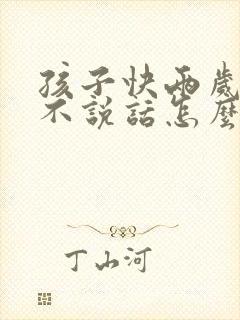 孩子快兩歲
不說話怎麼
丁山河